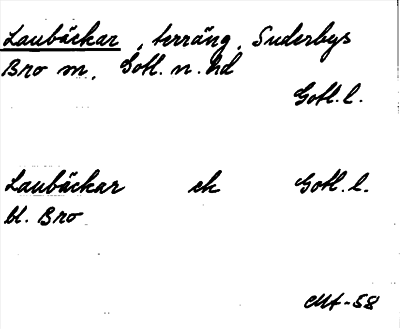 Laubäckar, terräng, Suderbys
Bro sn, Gotl. n. hd
Gotl. l.
Laubäckar ek Gotl. l.
bl. Bro
-58